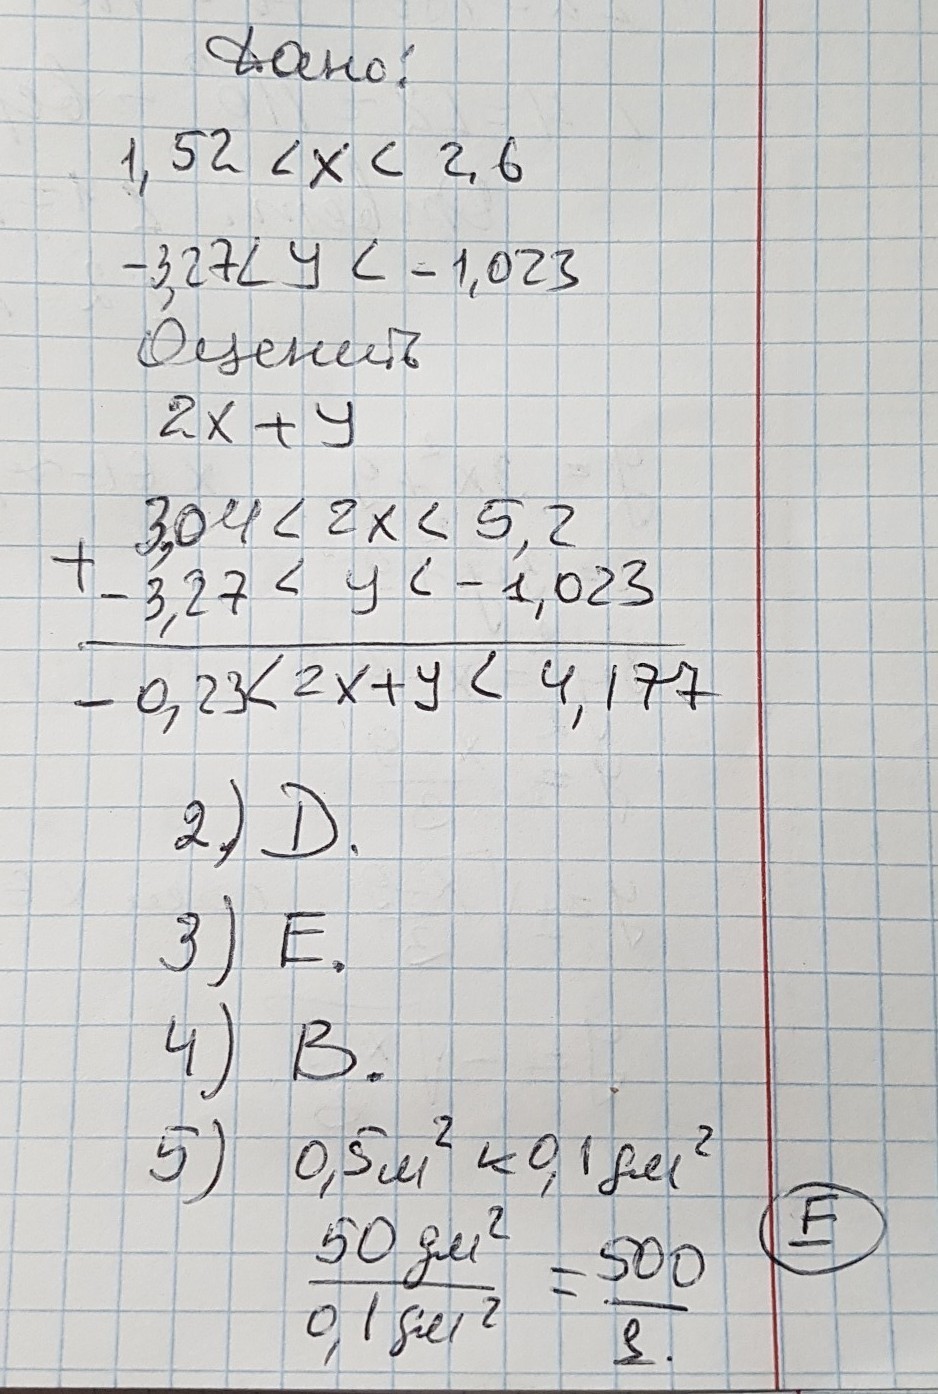 Дано:
1,52 < x < 2,6
-3,27 < y < -1,023
Оценить
2x + y
3,04 < 2x < 5,2
+
-3,27 < y < -1,023
-0,23 < 2x+y < 4,177
2) D.
3) E.
4) B.
5) 0,5м² к 0,1дм²
50 дм² / 0,1 дм² = 500 / 1.
E